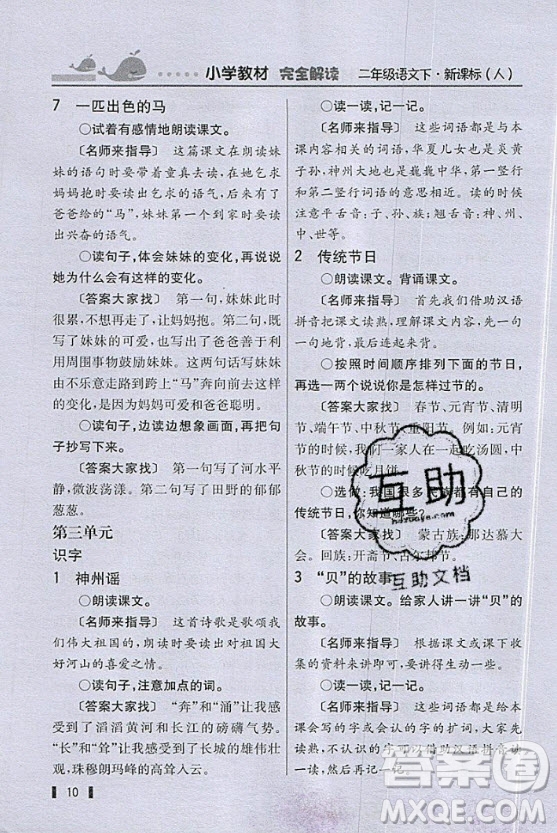 小学教材 完全解读 二年级语文下·新课标（人）
7 一匹出色的马
○试着有感情地朗读课文。
〔名师来指导〕 这篇课文在朗读妹
妹的语句时要带着童真去读，在她乞求
妈妈抱时要读出乞求的语气，后来有了
爸爸给的“马”，妹妹第一个到家时要读
出兴奋的语气。
○读句子，体会妹妹的变化，再说说
她为什么会有这样的变化。
〔答案大家找〕 第一句，妹妹此时
很累，不想走了，让妈妈抱。第二句，既
写出了妹妹的变化，也写出了爸爸善于利
用周围事物鼓励妹妹。这两句话写妹妹
由不乐意走路到骑在“马”奔向前方去
迎接家人，是因为妈妈可爱和爸爸聪明。
○朗读课文，边读边想象画面，再把句
子抄写下来。
〔答案大家找〕 第一句写了河水平
静，微波荡漾。第二句写了田野的郁郁
葱葱。
第三单元
识字
1 神州谣
○朗读课文。
〔名师来指导〕 这首诗歌是歌颂我
们伟大祖国的，朗读时要读出对祖国大
好河山的喜爱、赞美之情。
○读句子，注意加点的词。
〔答案大家找〕 “奔”和“涌”让我感
受到了滔滔黄河和长江的磅礴气势。
“长”和“耸”让我感受到了长城的雄伟壮
观，珠穆朗玛峰的高耸入云。
10
○读一读，记一记。
〔名师来指导〕 这些词语都是与本
课内容相关的词语，华夏儿女也是炎黄
子孙，神州大地也是巍巍中华，与第一竖行
和第二竖行词语的意思相近。读的时候
注意平舌音：子、孙、族；翘舌音：神、州、
中、世等。
2 传统节日
○朗读课文。背诵课文。
〔名师来指导〕 首先我们借助汉语
拼音把课文读熟，理解课文内容，再一句
一句地背，最后把各句连起来。
○按照时间顺序排列下面的节日，
再选一两个说说你是怎样过节的。
〔答案大家找〕 春节、元宵节、清明
节、端午节、中秋节、重阳节。例：元宵
节的时候，我们一家人一起吃汤圆，中秋
节的时候吃月饼。
○选做：我国很多民族都有自己的
传统节日，你知道哪些？
〔答案大家找〕 蒙古族：那达慕大
会。回族：开斋节、古尔邦节。
3 “贝”的故事
○朗读课文。给家人讲一讲“贝”的
故事。
〔名师来指导〕 根据课文内容或收
集的资料来讲即可，要讲得生动一些。
○读一读，记一记。
〔名师来指导〕 这些词语都是给本
课会写的字或会认的字的扩词，大家先
读一读，不会读的可以借助汉语拼音或
再读几遍记一记。
互助
互助文档
答案圈